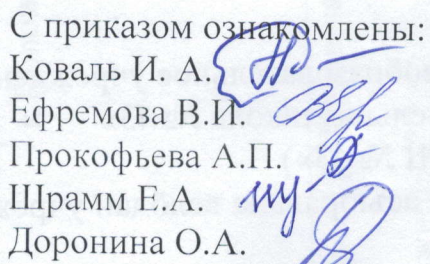 С приказом ознакомлены:
Коваль И. А.
Ефремова В.И.
Прокофьева А.П.
Шрамм Е.А.
Доронина О.А.